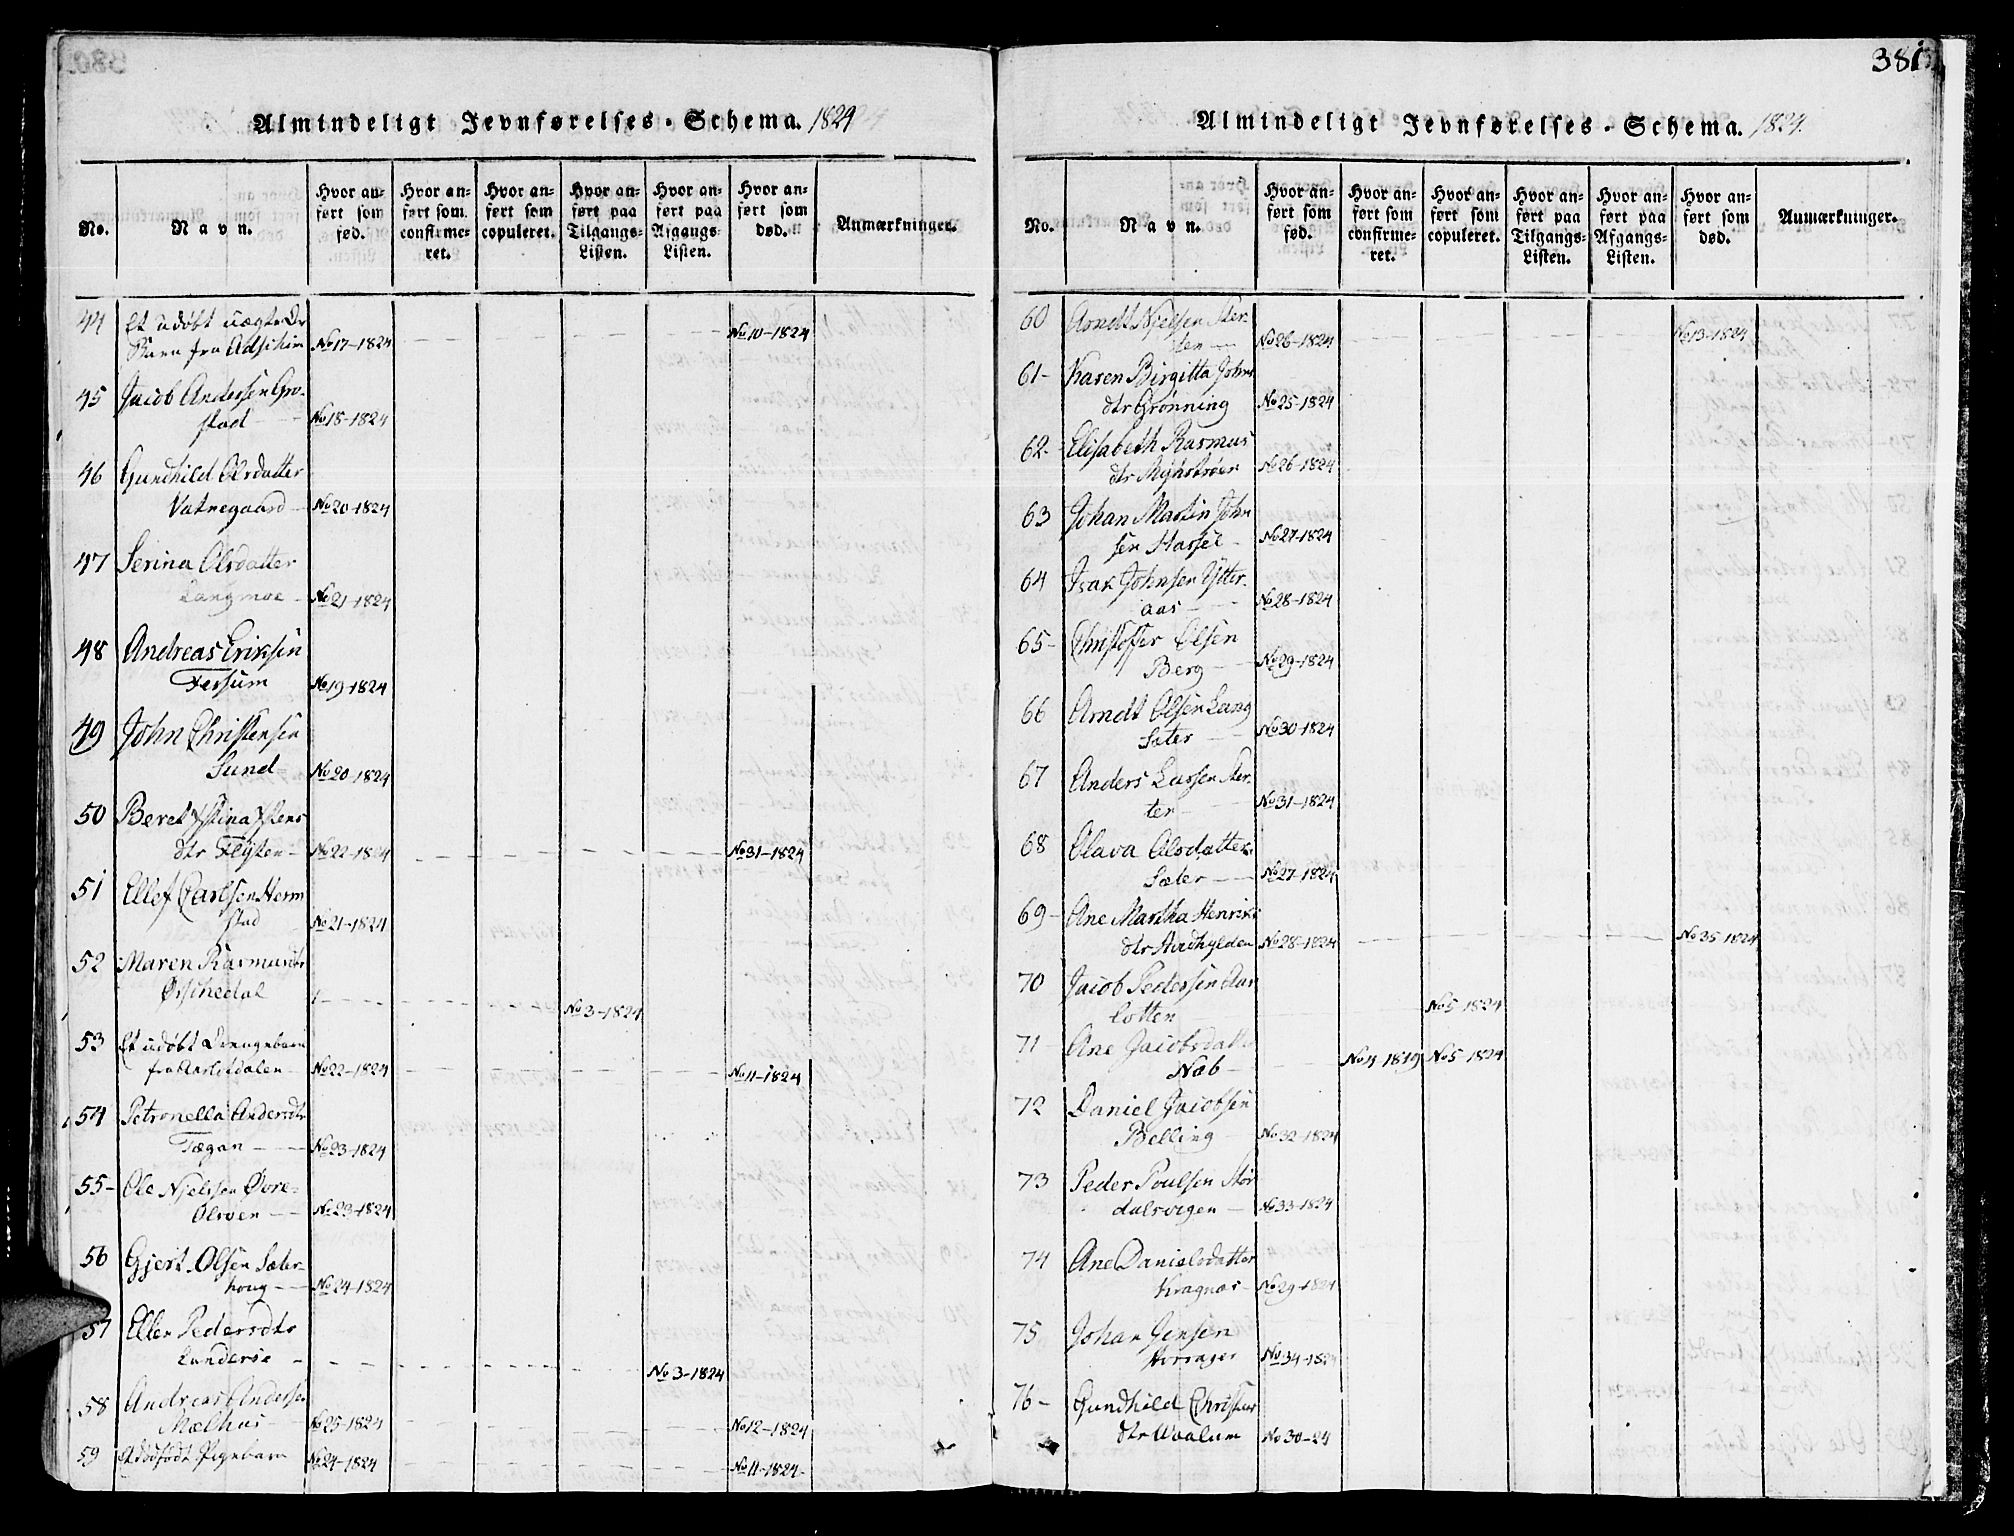 Almindeligt Jevnførelses-Schema. 1824
No.
Navn.
Hvor anført som fød.
Hvor anført som confirmeret.
Hvor anført som copuleret.
Hvor anført paa Tilgangs-Listen.
Hvor anført paa Afgangs-Listen.
Hvor anført som død.
Anmærkninger.
44 Et udøbt uægte
Barn fra No 17-1824 No 10-1824
45 Jacob Andersen Gro-
stad No 18-1824
46 Gundhild Olsdatter
Vatnegaard No 20-1824
47 Serina Olsdatter
Langmoe No 21-1824
48 Andreas Eriksen
No 19-1824
49 John Christensen
Sund No 20-1824
50 Beret Stina
dtr No 22-1824 No 31-1824
51 Ellef Carlsen Herm
stad No 21-1824
52 Maren Rasmusdtr
No 3-1824
53 Et udøbt Drengebarn
fra No 22-1824 No 11-1824
54 Petronella Andersdtr
No 23-1824
55- Ole Njelsen Øvre-
No 23-1824
56 Gjert Olsen Sæter-
houg No 24-1824
57 Ellen Pedersdtr
No 3-1824
58 Andreas Andersen
Mælhus No 25-1824 No 12-1824
59 Et dødfødt Pigebarn No 24-1824 No 11-1824
381
Almindeligt Jevnførelses-Schema. 1824.
No.
Navn.
Hvor anført som fød.
Hvor anført som confirmeret.
Hvor anført som copuleret.
Hvor anført paa Tilgangs-Listen.
Hvor anført paa Afgangs-Listen.
Hvor anført som død.
Anmærkninger.
60 Arndt Njelsen
No 26-1824 No 13-1824
61- Karen Birgitta Johns
dtr Grønning No 25-1824
62- Elisabeth Rasmus
dtr No 26-1824
63 Johan Martin John
sen No 27-1824
64 Isak Johnsen Ytter-
aas No 28-1824
65- Christoffer Olsen
Berg No 29-1824
66 Arndt Olsen Lang
Sæter No 30-1824
67 Anders Larsen
ter No 31-1824
68 Olava Olsdatter
Sæter No 27-1824
69- Ane Martha Henriks
dtr No 28-1824 No 35-1824
70 Jacob Pedersen
No 5-1824
71- Ane Jacobsdatter
Næb No 4-1819 No 5-1824
72 Daniel Jacobsen
Belling No 32-1824
73 Peder Poulsen Stor
dalsvigen No 33-1824
74 Ane Danielsdatter
Kragnæs No 29-1824
75 Johan Jensen
No 34-1824
76- Gundhild Christens
dtr Waalum No 30-24